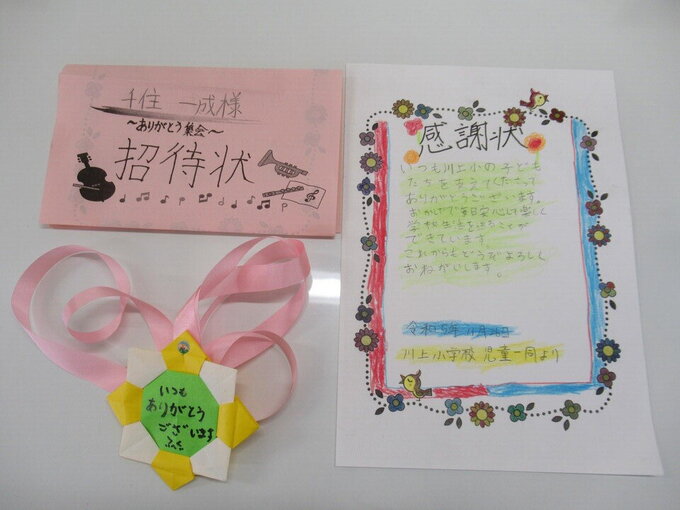 千住 一成様
～ありがとう集会～
招待状
感謝状
いつも川上小の子ども
たちを支えてくださって
ありがとうございます。
おかげで毎日安心して楽しく
学校生活を送ることが
できています。
これからもどうぞよろしく
おねがいします。
令和5年11月
川上小学校 児童一同より
いつも
ありがとう
ございます